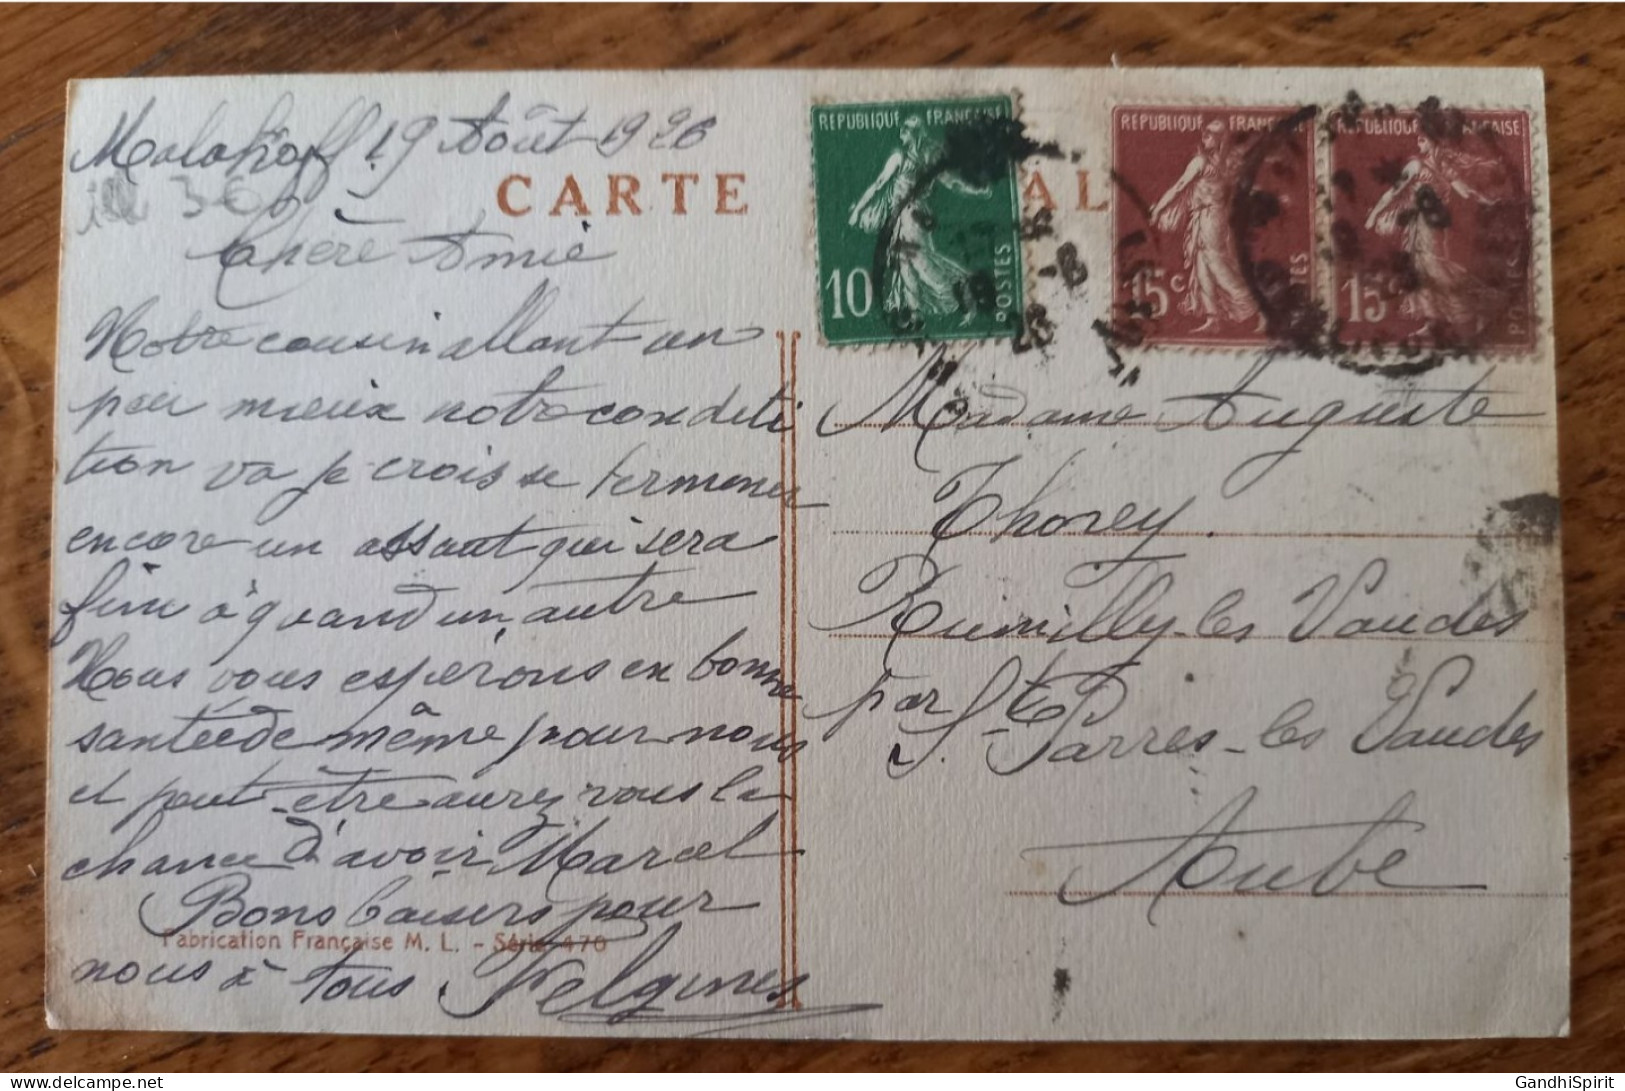 Malakoff 19 Août 1926
CARTE
Chère Amie
Notre cousin allant un
peu mieux notre conditi
tion va je crois se terminer
encore un assaut qui sera
fini à quand un autre
Nous vous espérons en bonne
santé de même pour nous
et peut-être aurez vous la
chance d'avoir Marcel
Bons baisers pour
nous à tous
Fabrication Française M. L. - Série 470
REPUBLIQUE FRANÇAISE
10
POSTES
REPUBLIQUE FRANÇAISE
15c
POSTES
REPUBLIQUE FRANÇAISE
15c
POSTES
Madame Auguste
Thorey
Rumilly-les Vaudes
par St Parres-les Vaudes
Aube
GandhiSpirit